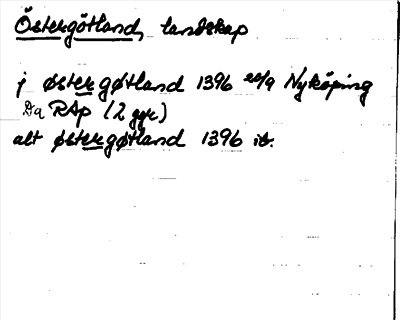 Östergötland, landskap
j østergøtland 1396 20/9 Nyköping
Da RAp (2 ggr)
alt østergøtland 1396 ib.